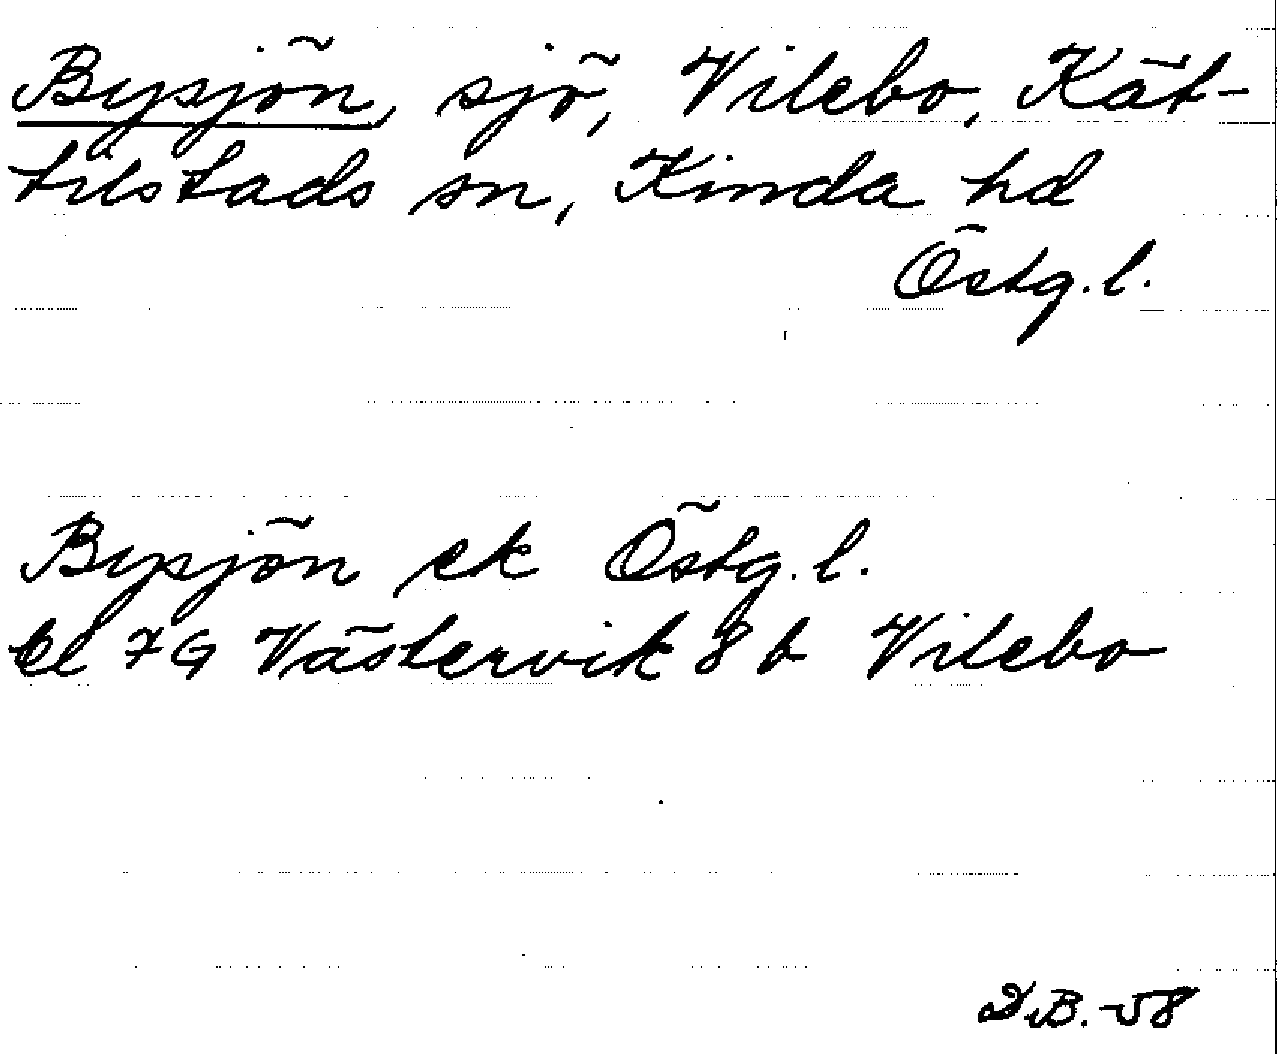 Bysjön, sjö, Vilebo, Kät-
tilstads sn, Kinda hd
Östg. l.
Bysjön ek Östg. l.
bl 7G Västervik 8 b Vilebo
D.B. -58